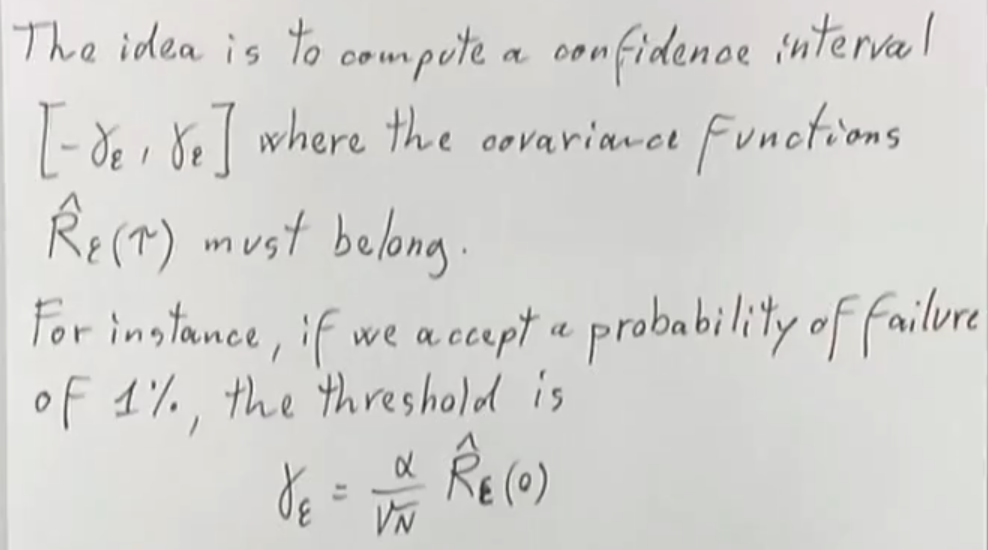 The idea is to compute a confidence interval
[-γε, γε] where the covariance functions
R̂ε(τ) must belong.
For instance, if we accept a probability of failure
of 1%, the threshold is
γε = α/√N R̂ε(0)